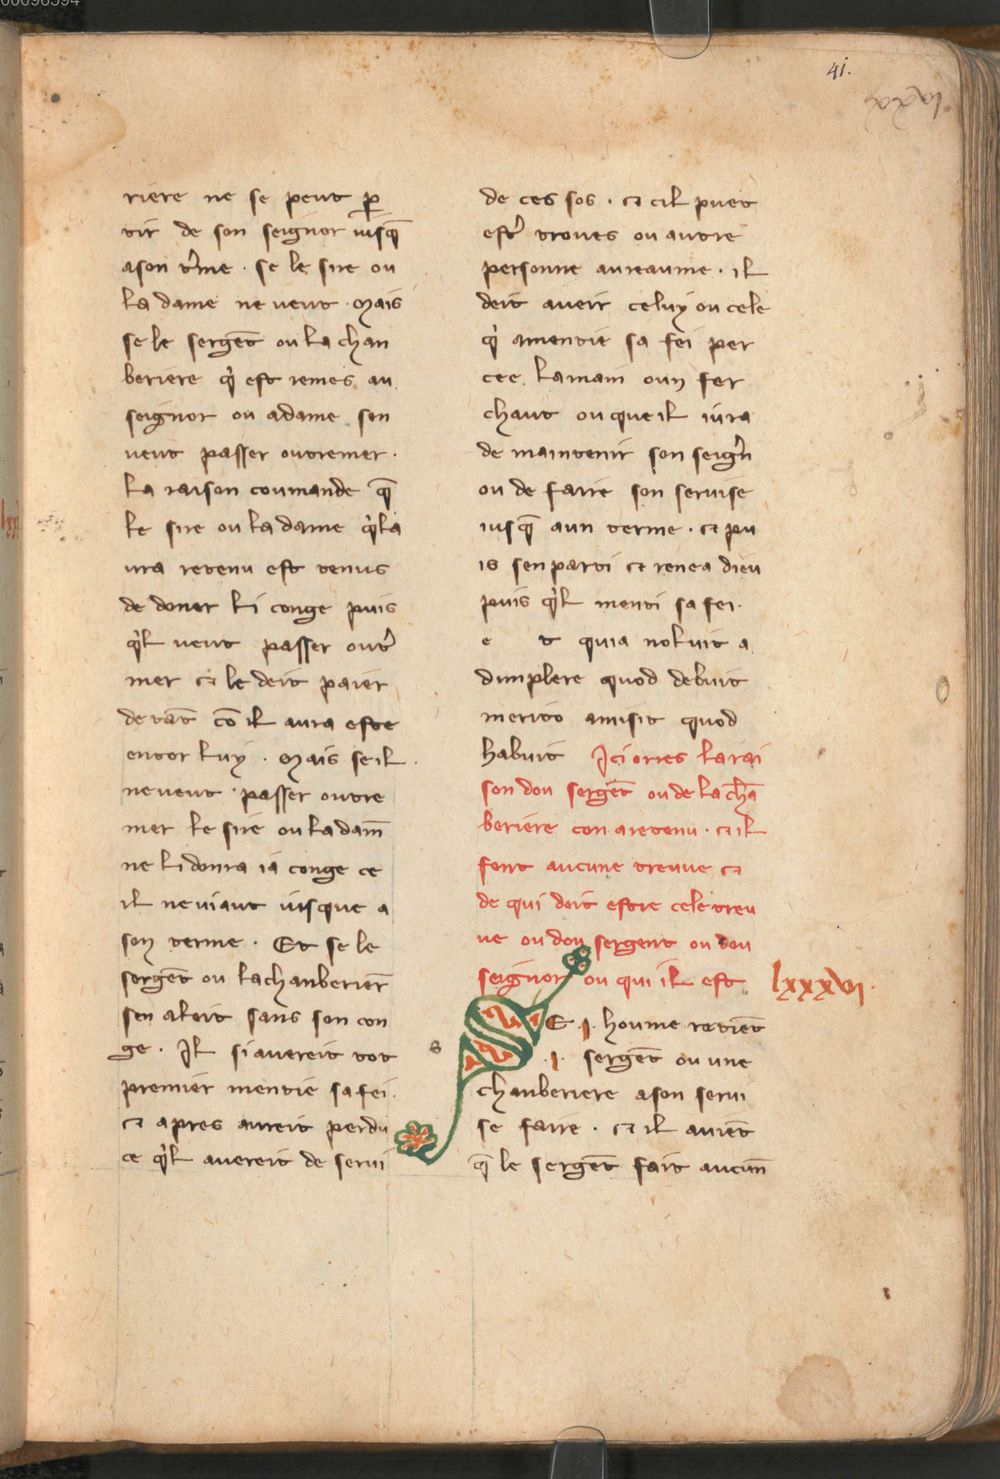 00096594
41.
lxxx
riere ne se peut p̱
tir de son seignor iusq̄
a son t'me . se le sire ou
la dame ne veut . Mais
se le sergēt ou la chan
beriere q̍ est remes au
seignor ou a dame sen
veut passer outremer .
La raison coumande q̄
le sire ou la dame q̍ la
ura retenu est tenus
de doner li conge puis
q̍l veut passer out̍
mer et le deit paier
de tāt cō il aura este
entor luy . Mais se il
ne veut passer outre
mer le sire ou la dam̄
ne li donra ia conge ce
il ne viaut iusque a
son terme . Et se le
sergēt ou la chanberier̄
sen aleit sans son con
ge . Il si avereit tot
premier mentie sa fei .
et apres aureit perdu
ce q̍l avereit de servi
de ces sos . et cil puet
est̍ troves ou autre
personne au reaume . il
deit aveir celuy ou cele
q̍ a mentie sa fei per
cee la main oun fer
chaut ou que il iura
de maintenir son seign̄
ou de faire son servise
iusq̄ a un terme . et pu
is sen parti et renea dieu
puis q̍l menti sa fei .
e t quia noluit a
dimplere quod debuit
merito amisit quod
habuit Ici ores la rai
son dou sergēt ou de la chā
beriere con a retenu . et il
font aucune treuve et
de qui doit estre cele treu
ve ou dou sergent ou dou
seignor ou qui il est
lxxxvi .
s
SE .i. houme retiēt
.i. sergēt ou une
chanberiere a son servi
se faire . et il aviēt
q̄ le sergēt fait aucun̄